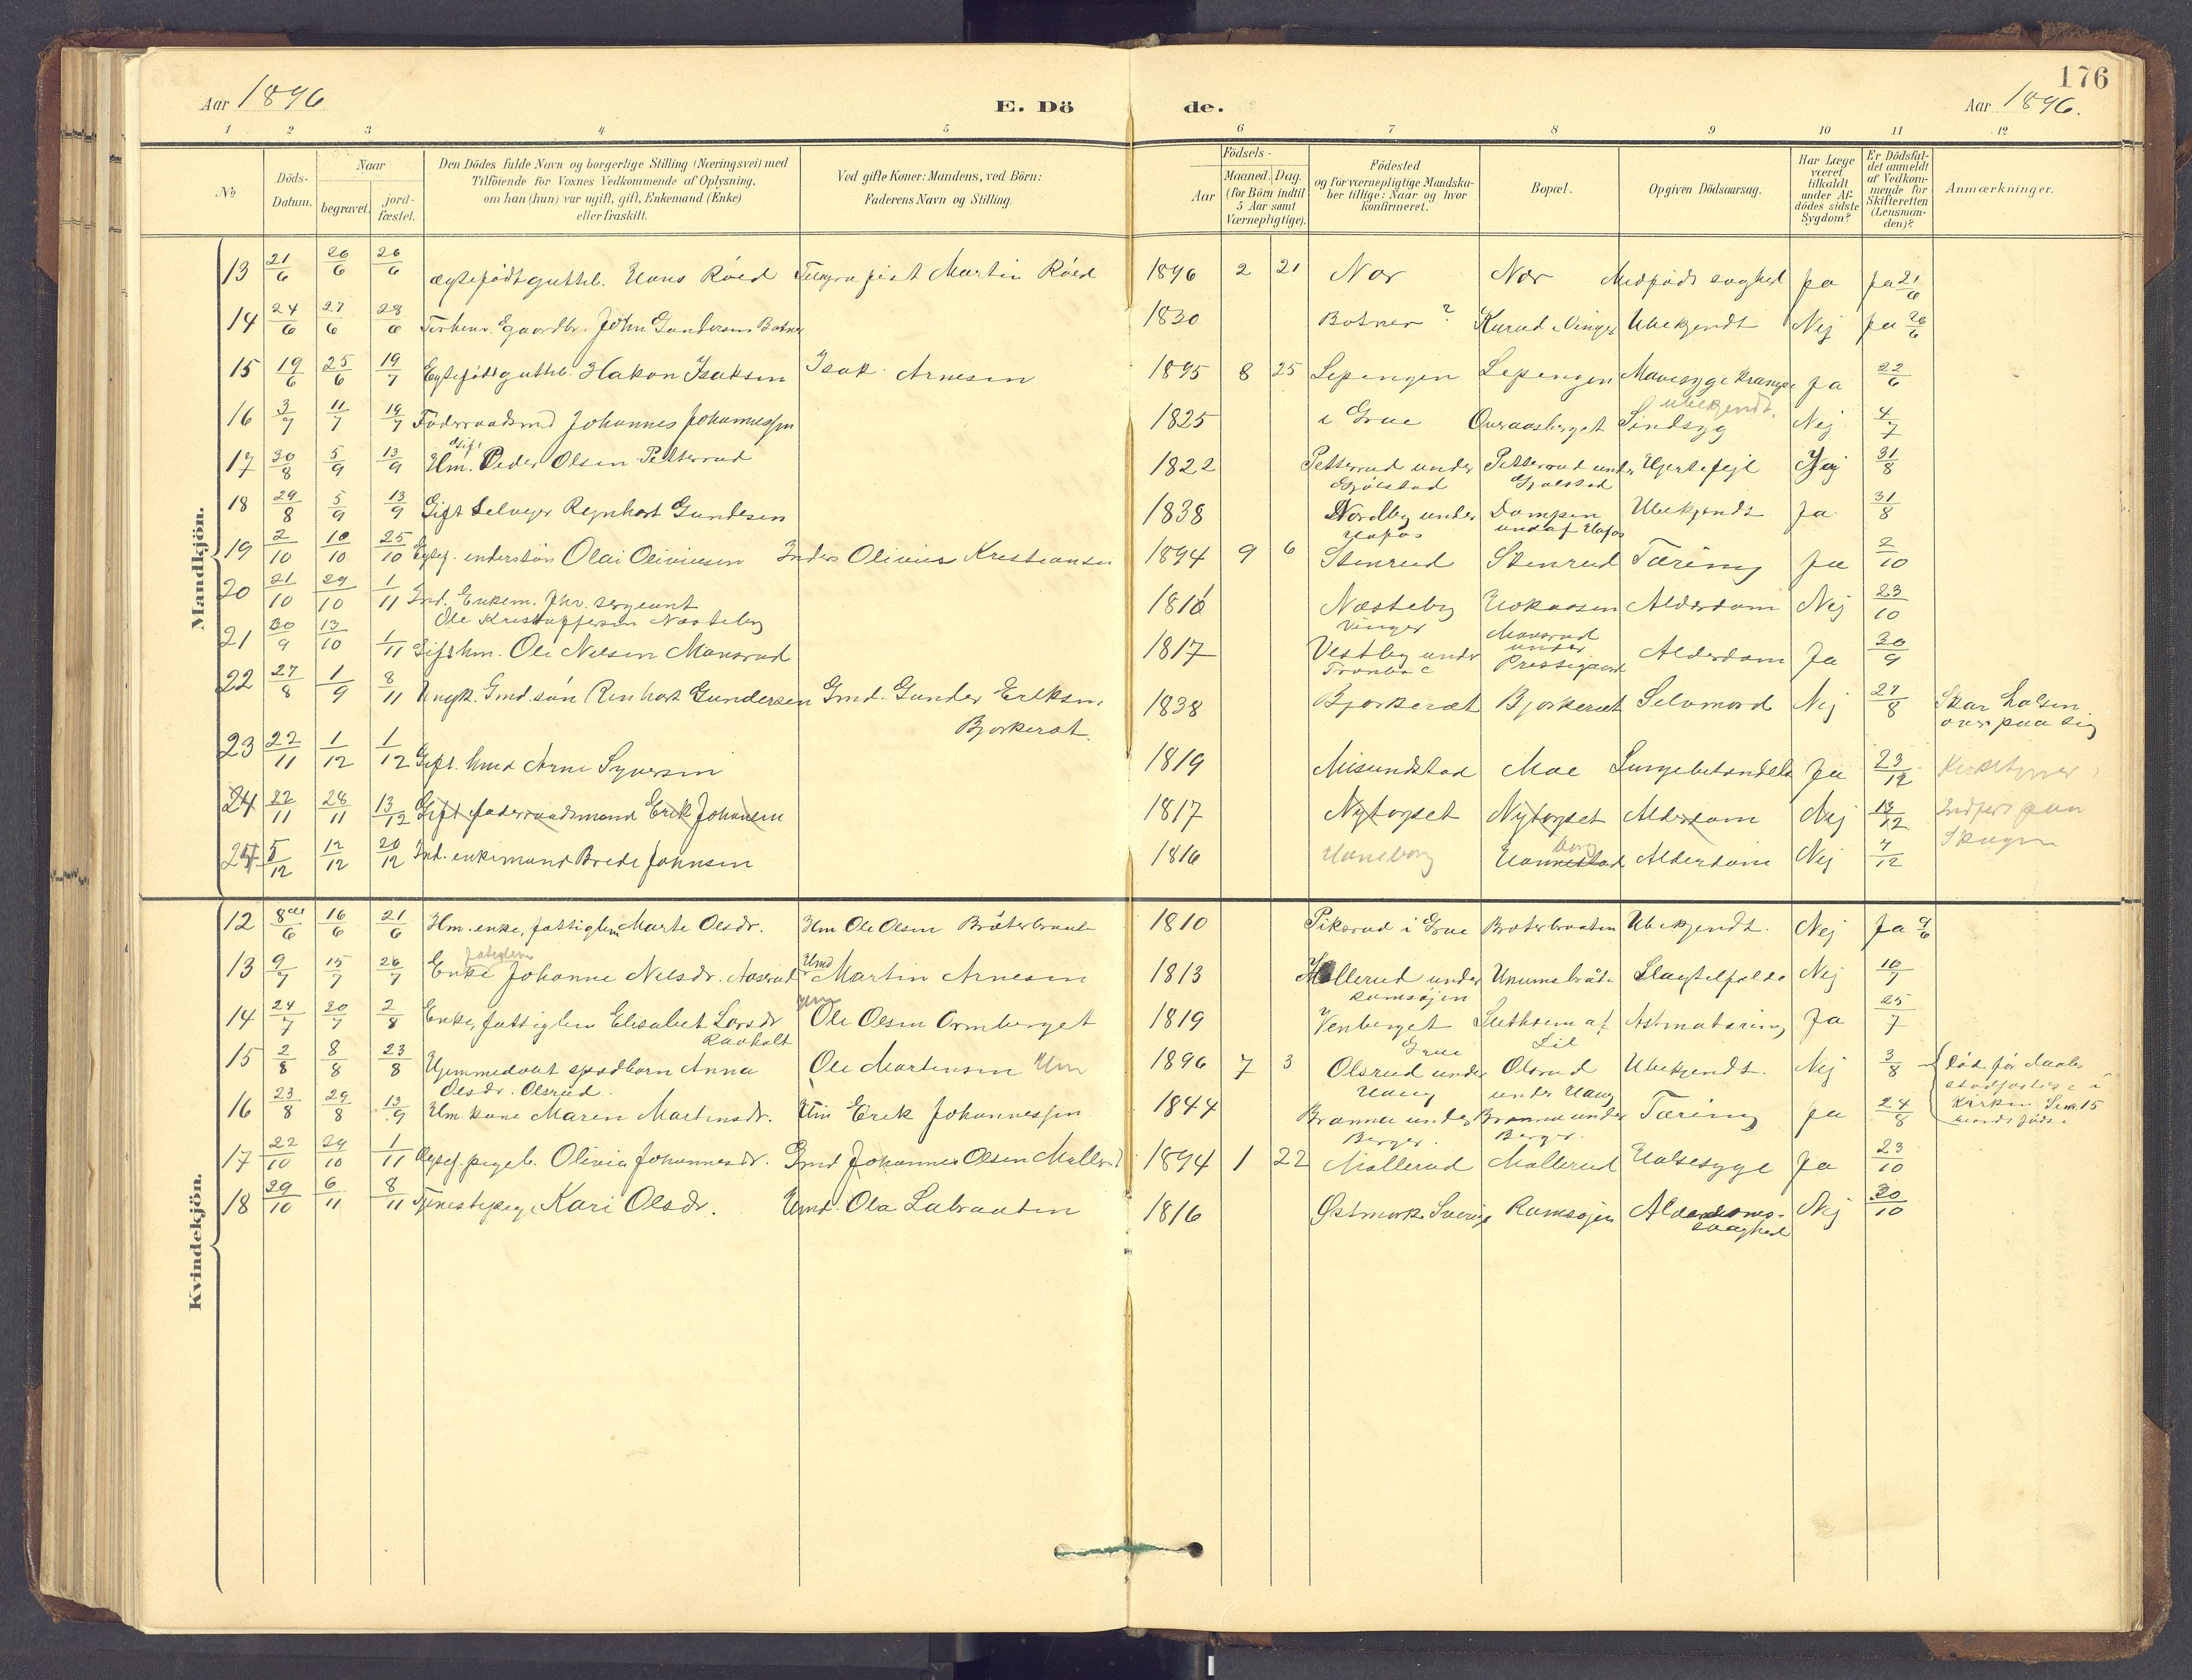 176
Aar 1896
E. Dö de.
Aar 1896.
1 2 3 4 5 6 7 8 9 10 11 12
No
Döds-Datum.
Naar
begravet.
jord-fæstet.
Den Dödes fulde Navn og borgerlige Stilling (Næringsvei) med
Tilföiende for Voxnes Vedkommende af Oplysning,
om han (hun) var ugift, gift, Enkemand (Enke)
eller fraskilt.
Ved gifte Koner: Mandens, ved Börn:
Faderens Navn og Stilling.
Födsels-
Aar
Maaned. Dag.
(for Börn indtil
5 Aar samt
Værnepligtige).
Födested
og for værnepligtige Mandska-
ber tillige: Naar og hvor
konfirmeret.
Bopæl.
Opgiven Dödsaarsag.
Har Læge
været
tilkaldt
under Af-
dödes sidste
Sygdom?
Er Dödsfal-
det anmeldt
af Vedkom-
mende for
Skifteretten
(Lensman-
den)?
Anmærkninger.
Mandkjön.
13 21/6 26/6 26/6 ægtefødt gutteb. Hans Röed Telegrafist Martin Röed 1896 2 21 Nor Nor Medfødt svaghed ja ja 21/6
14 24/6 27/6 28/6 Gaardbr. John Gundersen Botner 1830 Botner? Kurud Vinger Ubekjendt Nej ja 26/6
15 19/6 25/6 19/7 Egtefødt gutteb. Hakon Isaksen Isak Arnesen 1895 8 25 Lepengen Lepengen Mavesyge krampe Ja 22/6
16 3/7 11/7 19/7 Föderaadsmd Johannes Johannessen 1825 i Grue Overaasberget Sindsyg ubekjendt. Nej 4/7
17 30/8 5/9 13/9 Gift Hm. Peder Olsen Petterrud 1822 Petterrud under Gjölstad Petterrud under Gjølstad Hjertefejl Nej 31/8
18 29/8 5/9 13/9 Gift Selvejer Reynhart Gundesen 1838 Nordby under Hofos Dampen under Hofos Ubekjendt Ja 31/8
19 2/10 10/10 25/10 Egtef. inderstsön Olai Oliviusen Inders Olivius Kristiansen 1894 9 6 Stenrud Stenrud Tæring Ja 2/10
20 21/10 29/10 1/11 Ind. Enkem. fhv. sergeant
Ole Kristoffersen Næsteby 1816 Næsteby Vinger Hokaasen Alderdom Nej 23/10
21 30/9 13/10 1/11 Gift hm. Ole Nilsen Mansrud 1817 Vestby under Mansrud under Prestegaard Alderdom Ja 30/9
22 27/8 1/9 8/11 Ungk. Gmd. sön Renhart Gundersen Gmd. Gunder Eriksen
Bjorkerat. 1838 Bjorkerat Bjorkerat Selvmord Nej 27/8 Skar halsen
over paa sig
23 22/11 1/12 1/12 Gift. hmd Arne Syversen 1819 Misundstad Moe Lungebetændelse Ja 23/12
24 22/11 28/11 13/12 Gift föderraadsmand Erik Johansen 1817 Nytorpet Nytorpet Alderdom Nej 13/12 Indført paa
Skogen
24 5/12 12/12 20/12 Ind. enkemand Brede Johnsen 1816 Haneborg Hannestad borg Alderdom Nej 7/12
Kvindekjön.
12 8de/6 16/6 21/6 Hm. enke, fattiglem Marte Olsdr. Hm Ole Olsen Bråterbraaten 1810 Pikerud i Grue Braterbraaten Ubekjendt. Nej Ja 9/6
13 9/7 15/7 26/7 Enke Johanne Nilsdr. Aaserud Hmd Martin Arnesen 1813 Möllerud under Rumsöjen Slagtilfælde Nej 10/7
14 24/7 30/7 2/8 Enke, fattiglem Elisabet Larsdr Ravholt Ole Olsen Ormberget 1819 Venberget Grue af Lil Astmatæring Ja 25/7
15 2/8 8/8 23/8 Hjemmedøbt spædbarn Anna
Olsdr. Olsrud. Ole Martinsen Hm 1896 7 3 Olsrud under Haug Olsrud under Haug Ubekjendt. Nej 3/8 Død før daaben
stadfæstet i
kirken. Se no. 15
16 23/8 29/8 13/9 Hm. kone Maren Martinsdr. Hm Erik Johannessen 1844 Branna under Berger. Branna under Berger. Tæring ja 24/8
17 22/10 29/10 1/11 Egtef. pigeb. Olivia Johannesdr. Gmd Johannes Olsen Mallerud 1894 1 22 Mallerud Mallerud Halsesyge Ja 23/10
18 29/10 6/11 8/11 Tjenestepige Kari Olsdr. Hmd. Ola Labraaten 1816 Østmark Sverige Rumsøjen Alderdoms-
svaghed Nej 30/10